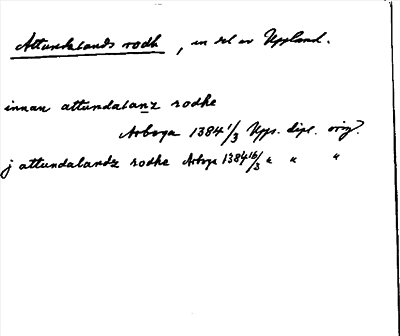 Attundalands rodh, en del av Uppland.
innan attundalanz rodhe
Arboga 1384 1/3 Upps. dipl. orig.
j attundalandz rodhe Arboga 1384 16/3 " " "